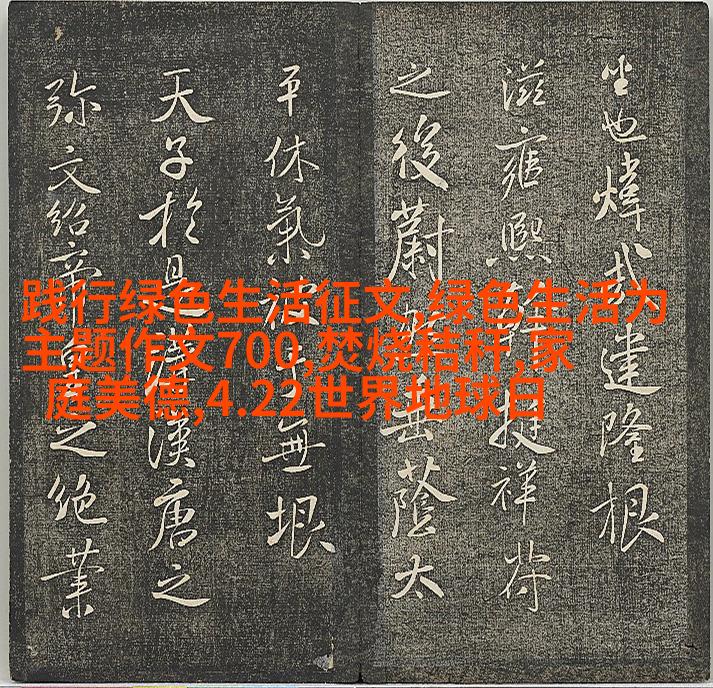 践行绿色生活征文,绿色生活为
主题作文700,焚烧秸秆,家
庭美德,4.22世界地球日
也煒哉建隆根
滋雍熙挺祥符
之後蔚岳蔭太
平休氣無垠
天子於是漢唐之
弥文紹帝之絶業